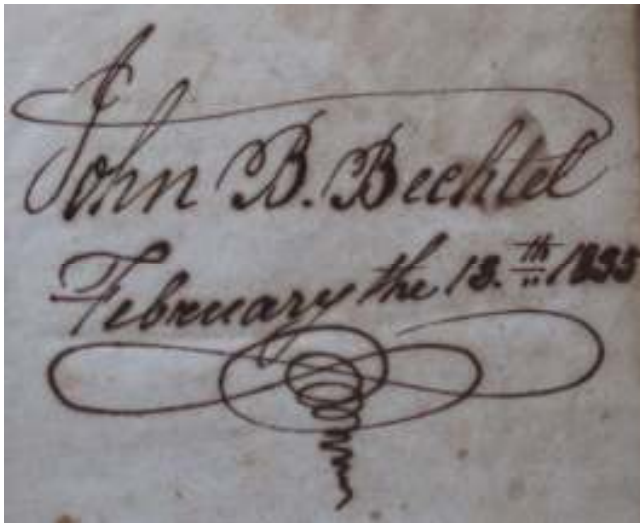 John B. Bechtel
February the 13.th 1835